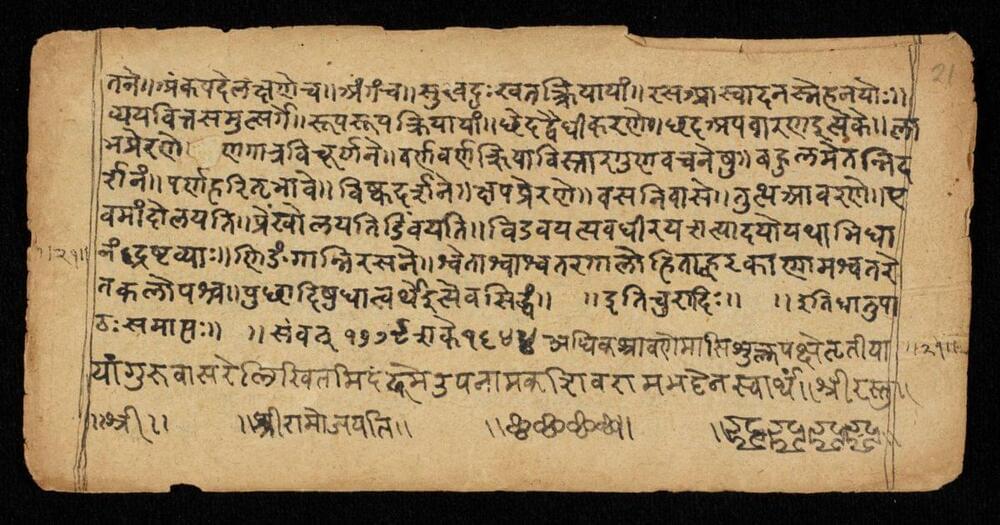 तने॥ अंक पदे लक्षणे च॥ अंग च॥ सुख दुःख तत्क्रियायां॥ रस आस्वादनस्नेहनयोः॥
व्यय वित्तसमुत्सर्गे॥ रूप रूपक्रियायां॥ छेद द्वैधीकरणे॥ छद अपवारण इत्येके॥ ला
भ प्रेरणे॥ व्रण गात्रविचूर्णने॥ वर्ण वर्णक्रियाविस्तारगुणवचनेषु॥ बहुलमेतन्निद
र्शनं॥ पर्ण हरितभावे॥ विष्क दर्शने॥ क्षप प्रेरणे॥ वस निवासे॥ तुत्थ आवरणे॥ ए
वमांदोलयति॥ प्रेंखोलयति विडंबयति॥ अवधीरय इत्यादयो यथाभिधा
नं द्रष्टव्याः॥ णिङंगान्निरसने॥ श्वेताश्वाश्वतरगालोडिताह्वरकाणामश्वतरे
तकलोपश्च॥ पुच्छादिषु धात्वर्थे इत्येव सिद्धं॥ ॥ इति चुरादिः॥ ॥ इति धातुपा
ठः समाप्तः॥ ॥ संवत् १७७९ शके १६४४ अधिकश्रावणे मासि शुक्लपक्षे तृतीया
यां गुरुवासरे लिखितमिदं उपनामक शिवराम भट्टेन स्वार्थं॥ श्रीरस्तु॥
॥ श्री॥ ॥ श्रीरामो जयति॥
॥२१॥
॥२१॥
21